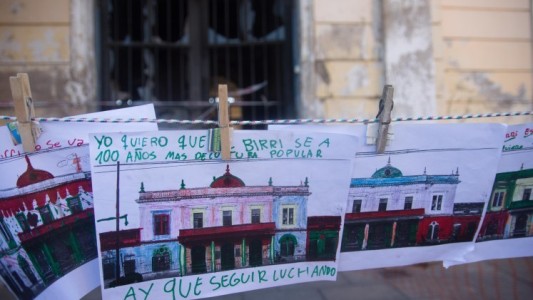 YO QUIERO QUE EL BIRRI SE A
100 AÑOS MAS DE CULTURA POPULAR
AY QUE SEGUIR LUCHANDO
se va